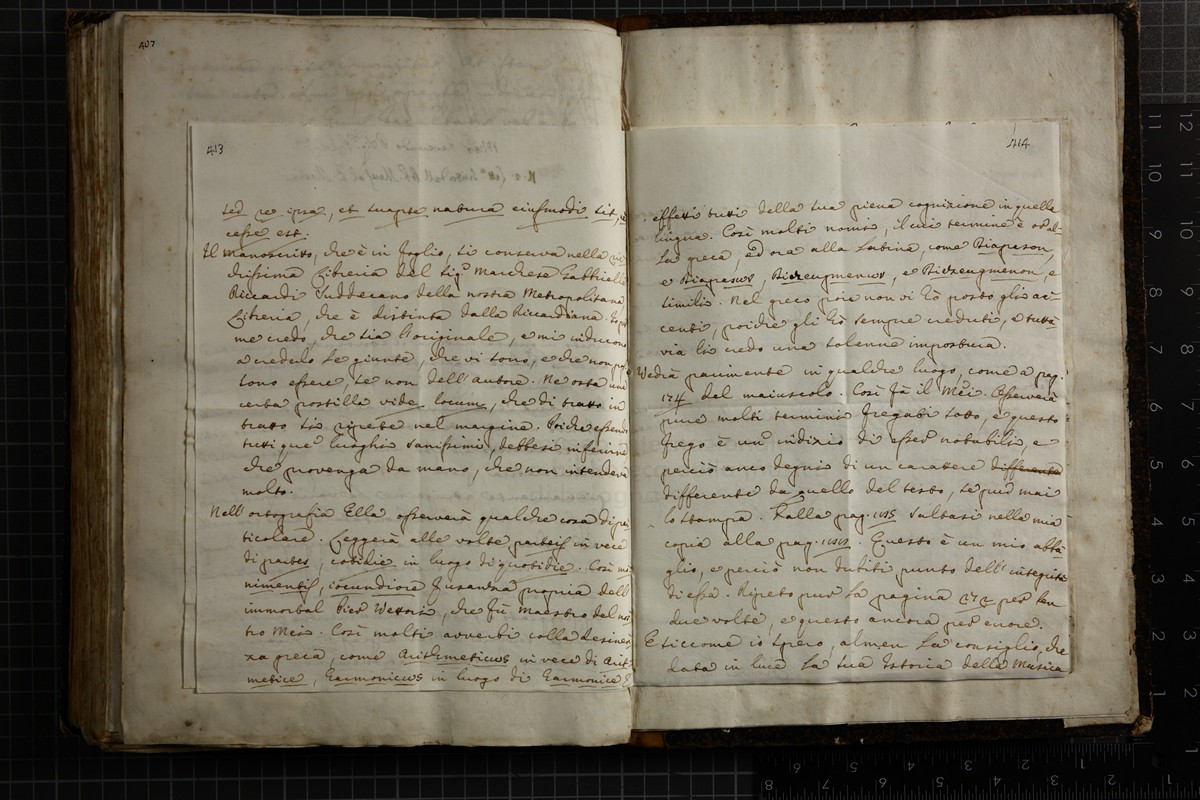 407
413
sed re ipsa, et suapte natura eiusmodi sit,
cesse est.
Il Manoscritto, che è in foglio, si conserva nella
dissima Libreria del Sigr Marchese Gabbriello
Riccardi Suddecano della nostra Metropolitana
Libreria, che è distinta dalla Riccardiana.
me credo, che sia l'originale, e mi inducono
a crederlo le giunte, che vi sono, e che non
sono essere, se non dell'autore. Ne osta una
certa postilla vide locum, che di tratto in
tratto si ripete nel margine. Poiche essendo
tutti que' luoghi sanissimi, debbesi inferirne
che provenga da mano, che non intendeva
molto.
Nell'ortografia Ella osserverà qualche cosa di par
ticolare. Leggerà alle volte parteis in vece
di partes, cotidie in luogo di quotidie. Così
nimenteis, iocundiora usanza propria dell'
immortal Pier Vettori, che fù Maestro del nos
tro Mei. Così molti avverbi colla desinen
za greca, come Arithmeticως in vece di Arit
metice, Harmonicως in luogo di Harmonice
414
effetti tutti della sua piena cognizione in quella
lingua. Così molti nomi, il cui termine è ora al
la greca, ed ora alla Latina, come Diapason,
e Diapasως, Diezeugmenως, e Diezeugmenon, e
simili. Nel greco poi non vi hò posto gli ac-
centi, poiche gli hò sempre creduti, e tutta
via li credo una solenne impostura.
Vedrà parimente in qualche luogo, come a pag.
174 del maiuscolo. Così fà il Mei. Osserverà
pure molti termini fregati sotto, e questo
frego è un indizio di esser notabili, e
perciò anco degni di un carattere differente
differente da quello del testo, se pur mai
lo stampa. Dalla pag. saltasi nella mia
copia alla pag. Questo è un mio abba
glio, e perciò non dubiti punto dell'integrità
di essa. Ripeto pur la pagina per ben
due volte, e questo ancora per errore.
E siccome io spero, almen La consiglio, che
data in luce La sua Istoria della Musica